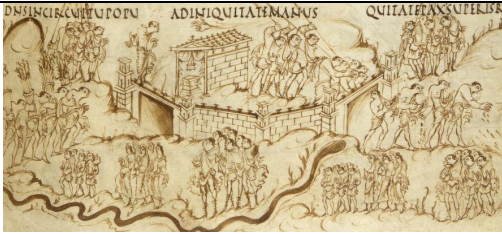 DNSINCIRCUITUPOPU ADINIQUITATEMANUS QUITATEPAXSUPERISR